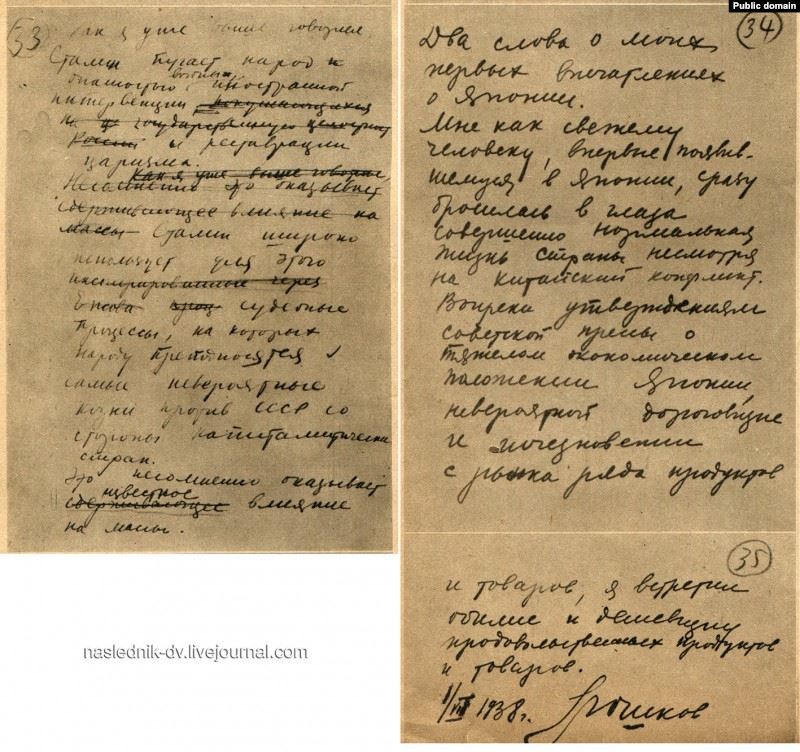 Public domain
33
Как я уже выше говорил,
Сталин пугает народ и
опасностью военных иностранной
интервенции, покушающихся
на государственную целостность
России и реставрации
царизма.
Как я уже выше говорил
Несомненно это оказывает
сдерживающее влияние на
массы Сталин широко
использует для этого
инсценированные через
Ежова судебные
процессы, на которых
народу преподносятся
самые невероятные
козни против СССР со
стороны капиталистических
стран.
Это несомненно оказывает
известное
сдерживающее влияние
на массы.
34
Два слова о моих
первых впечатлениях
о Японии.
Мне как свежему
человеку, впервые появив-
шемуся в Японии, сразу
бросилась в глаза
совершенно нормальная
жизнь страны несмотря
на китайский конфликт.
Вопреки утверждениям
советской прессы о
тяжелом экономическом
положении Японии,
невероятной дороговизне
и исчезновении
с рынка ряда продуктов
35
и товаров, я встретил
обилие и дешевизну
продовольственных продуктов
и товаров.
1/VII 1938 г. Люшков
naslednik-dv.livejournal.com